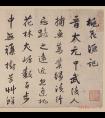 桃花源記
晉太元中武陵人
捕魚為業緣溪行
忘路之遠近忽逢
桃花林夾岸數百步
中無雜樹芳草鮮